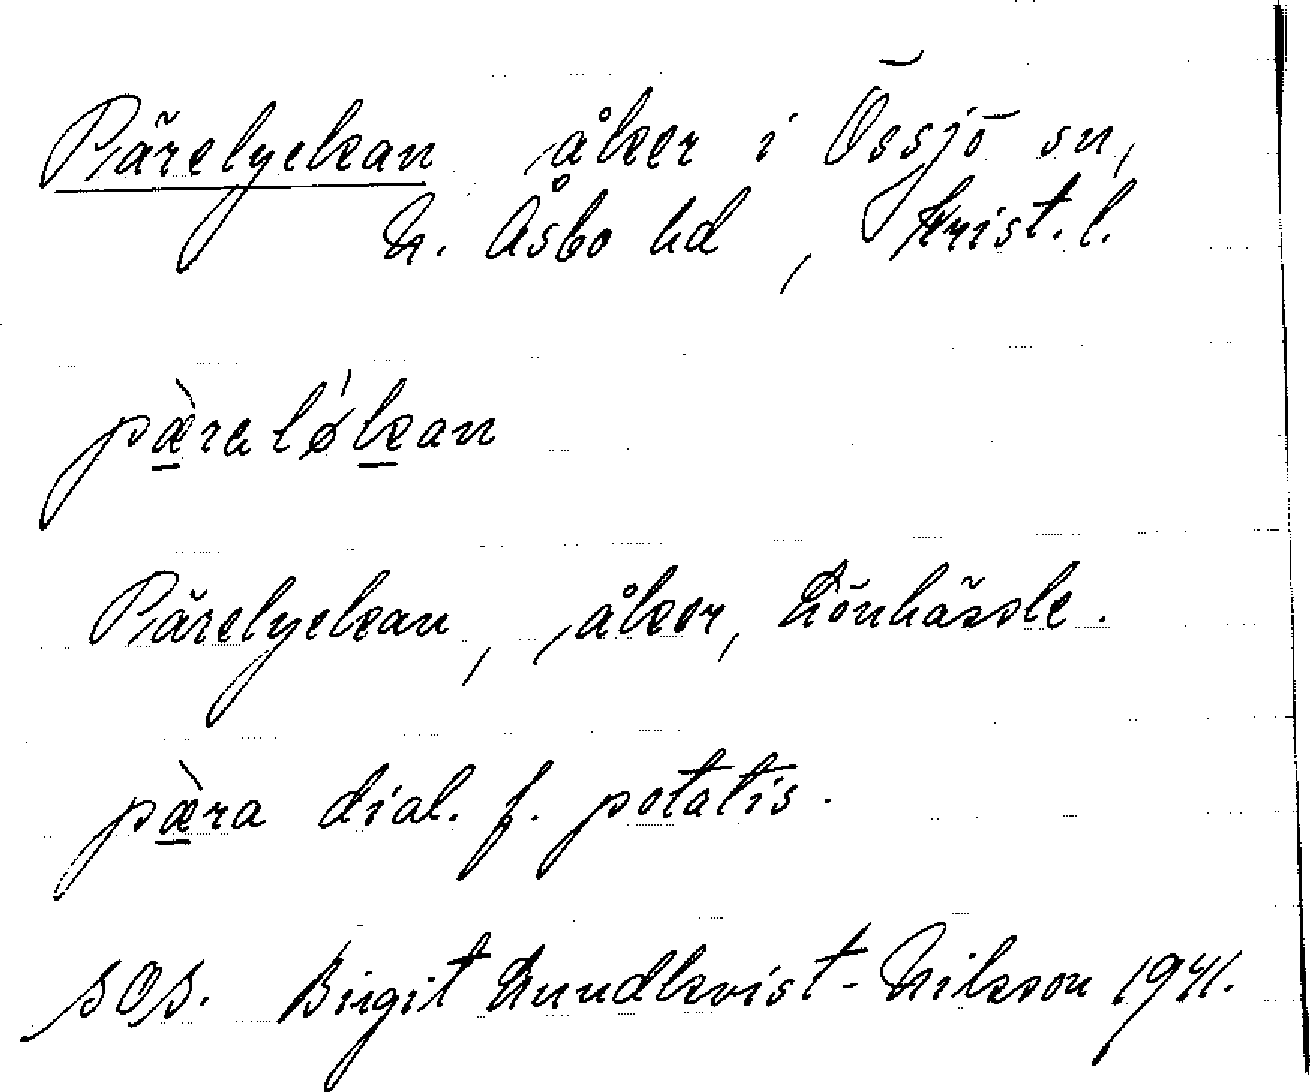 Pärelyckan åker i Össjö sn,
N. Åsbo hd, Krist. l.
pæ̀raló̷kan
Pärelyckan, åker, Lönhässle.
pæ̀ra dial. f. potatis.
SOS. Birgit Lundkvist-Nilsson 1941.